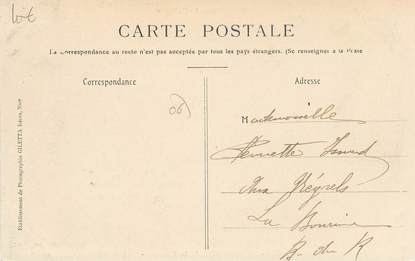 lot
CARTE POSTALE
La Correspondance au recto n'est pas acceptée par tous les pays étrangers. (Se renseigner à la Poste
Correspondance
Adresse
06
Mademoiselle
La
B. du R
Etablissement de Photographie GILETTA frères, Nice